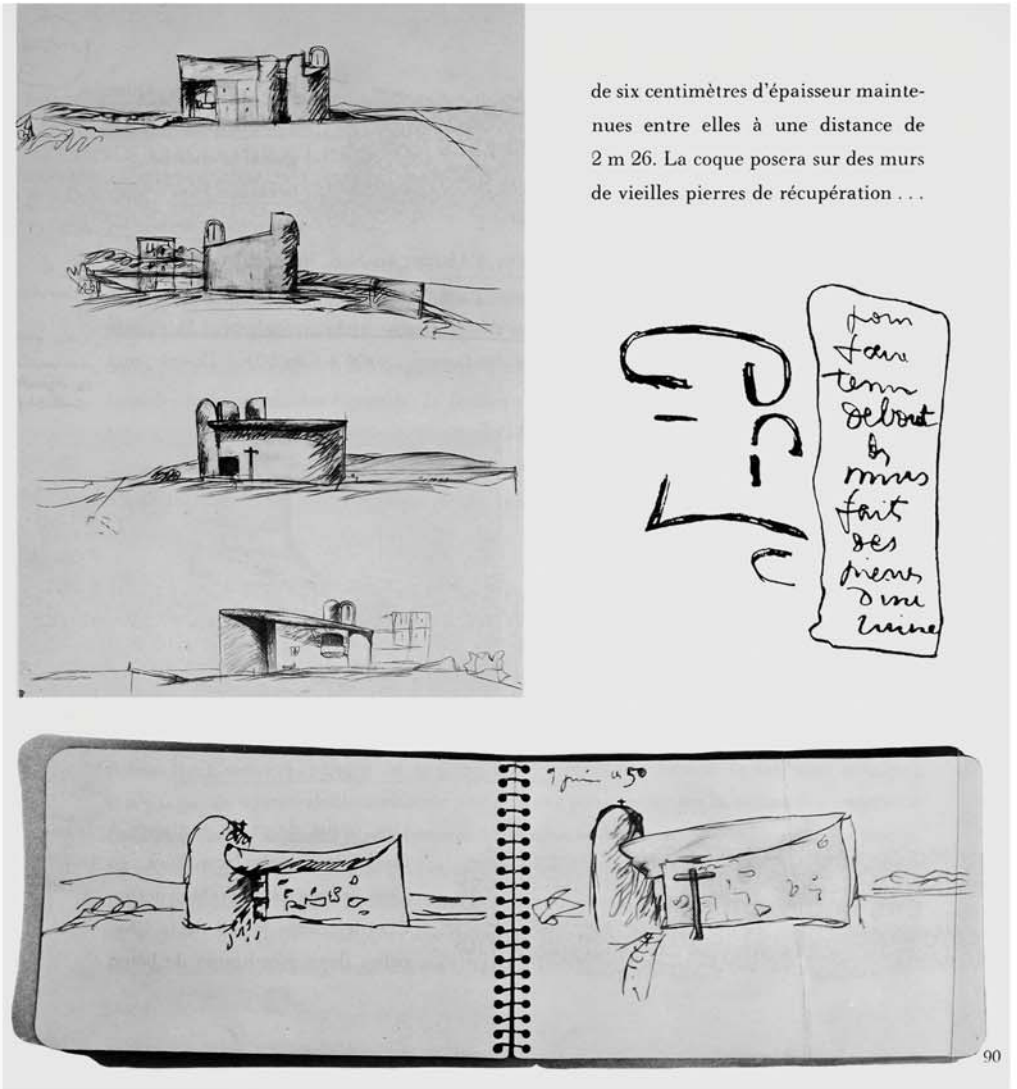 de six centimètres d'épaisseur mainte-
nues entre elles à une distance de
2 m 26. La coque posera sur des murs
de vieilles pierres de récupération . . .
pour
faire
tenir
debout
des
murs
faits
des
pierres
d'une
ruine
9 juin 50
90